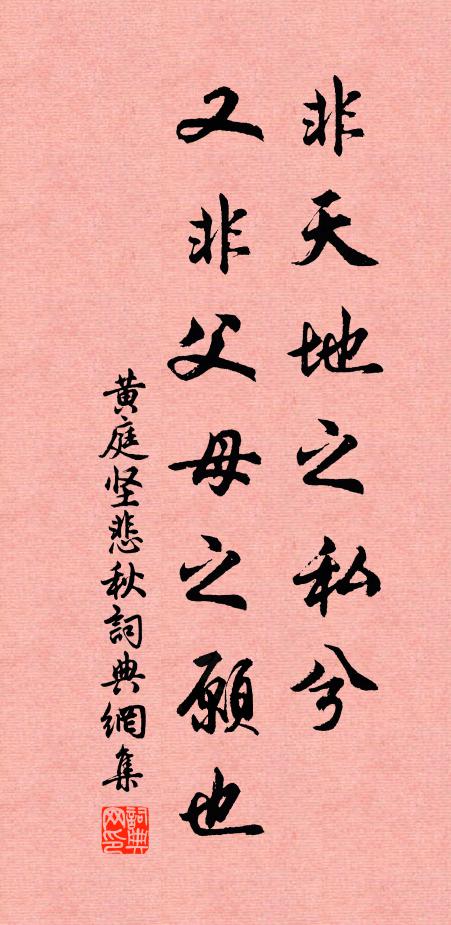 非天地之私兮
又非父母之願也
黄庭坚悲秋詞典網集
詞典网印